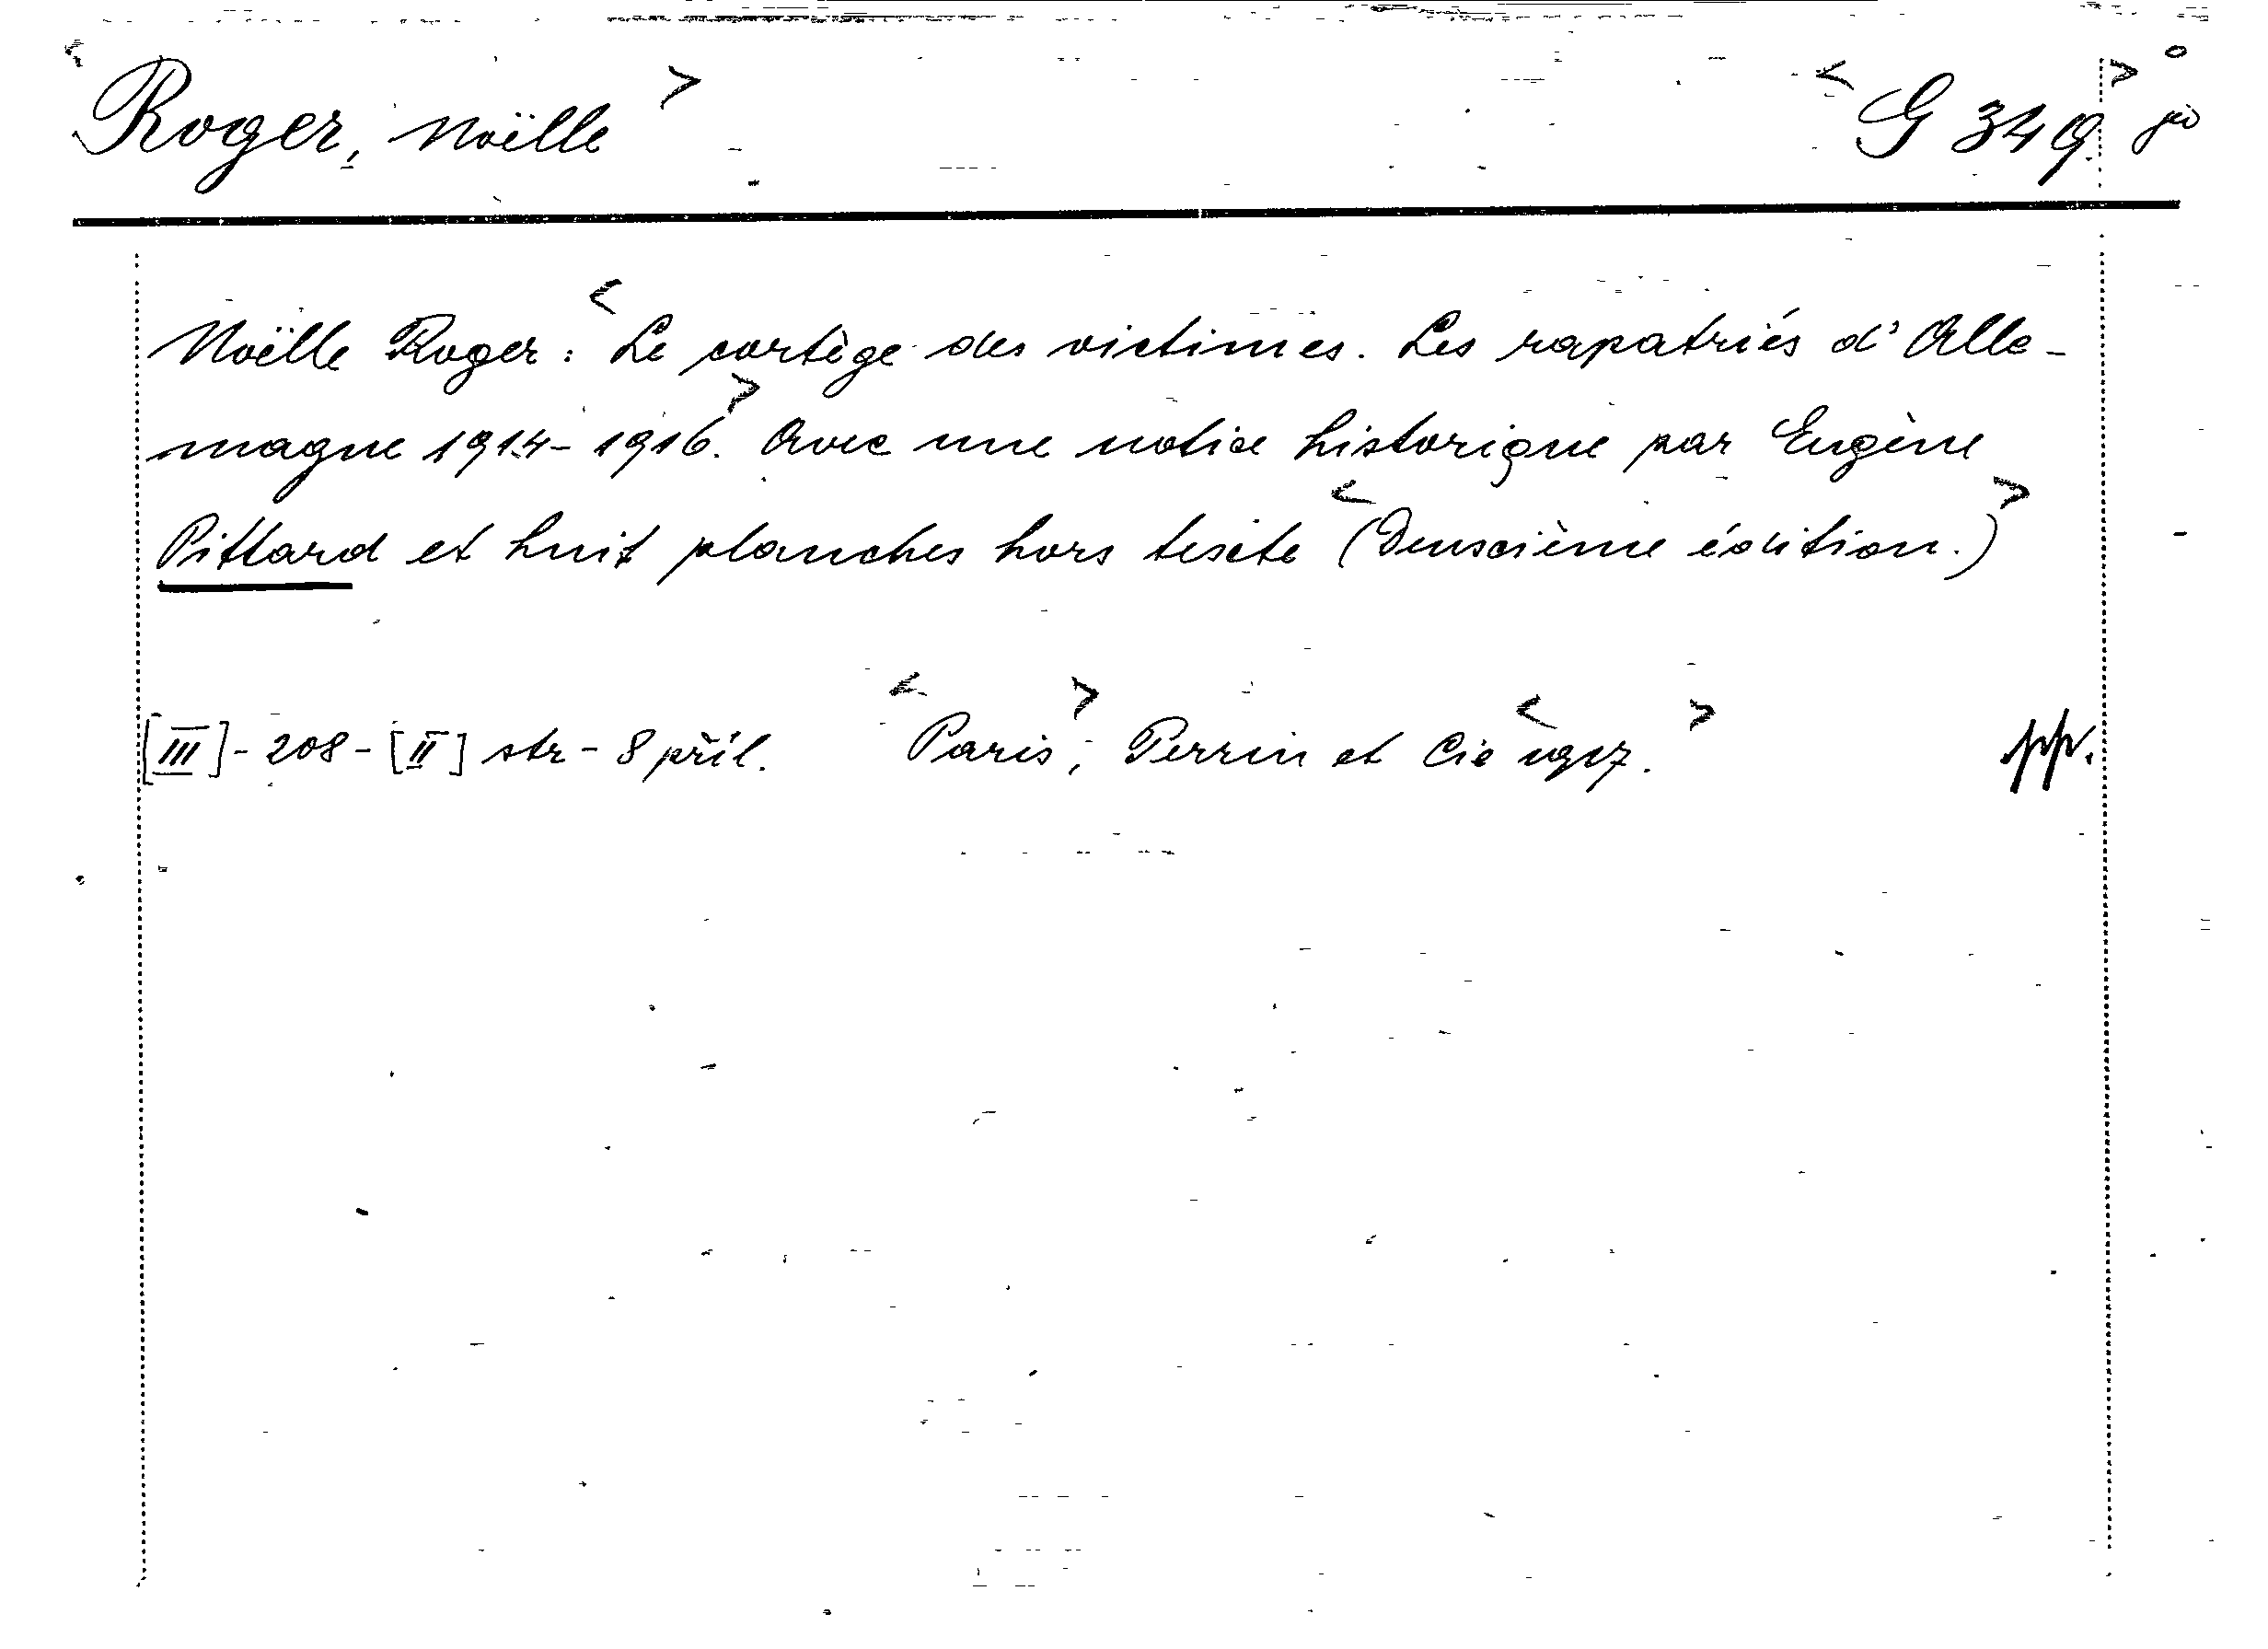 Roger, Noëlle G 349
Noëlle Roger: Le cortège des victimes. Les rapatriés d'Alle-
magne 1914-1916. Avec une notice historique par Eugène
Pittard et huit planches hors texte (Deuxième édition.)
[III]-208-[II] str - 8 příl. Paris, Perrin et Cie 1917. pp.